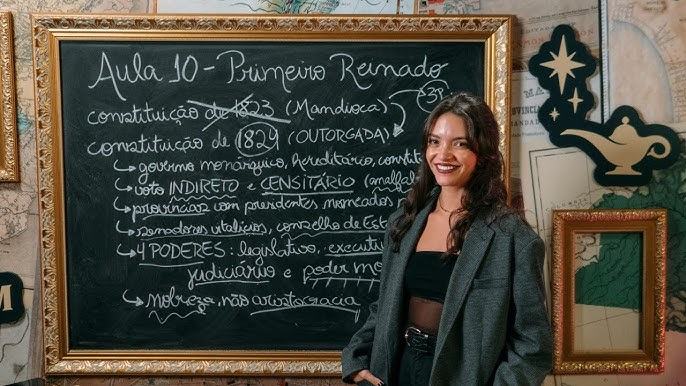 Aula 10 - Primeiro Reinado
constituição de 1823 (Mandioca)
constituição de 1824 (OUTORGADA)
↳ governo monárquico, hereditário,
↳ voto INDIRETO e CENSITÁRIO
↳ províncias com presidentes nomeados
↳ senadores vitalícios, conselho de
↳ 4 PODERES: legislativo,
judiciário e poder
↳ nobreza, não aristocracia